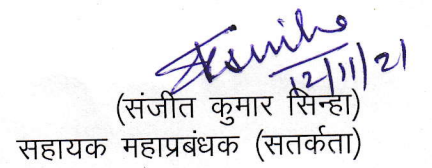 12/11/21
(संजीत कुमार सिन्हा)
सहायक महाप्रबंधक (सतर्कता)